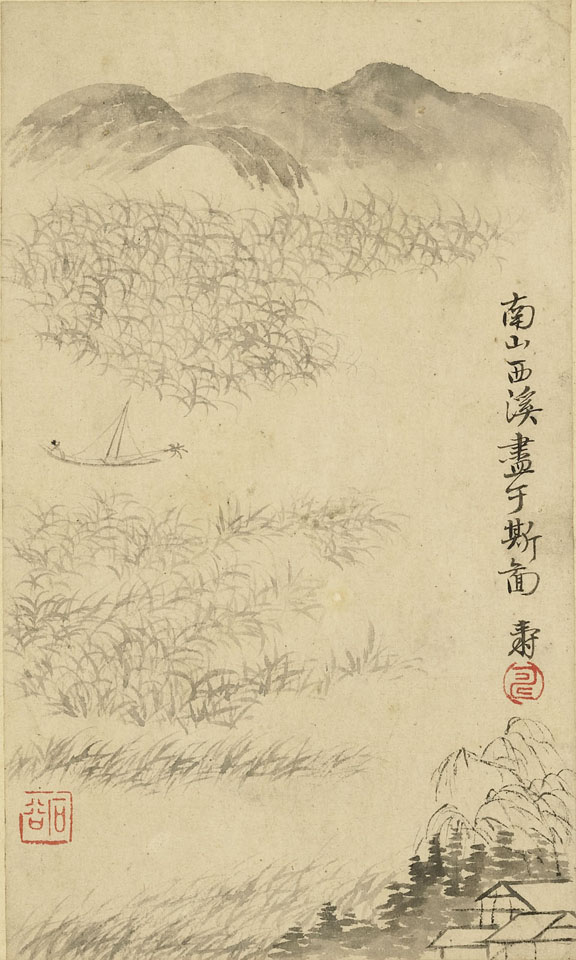 南山西溪盡于斯面 壽
石谷